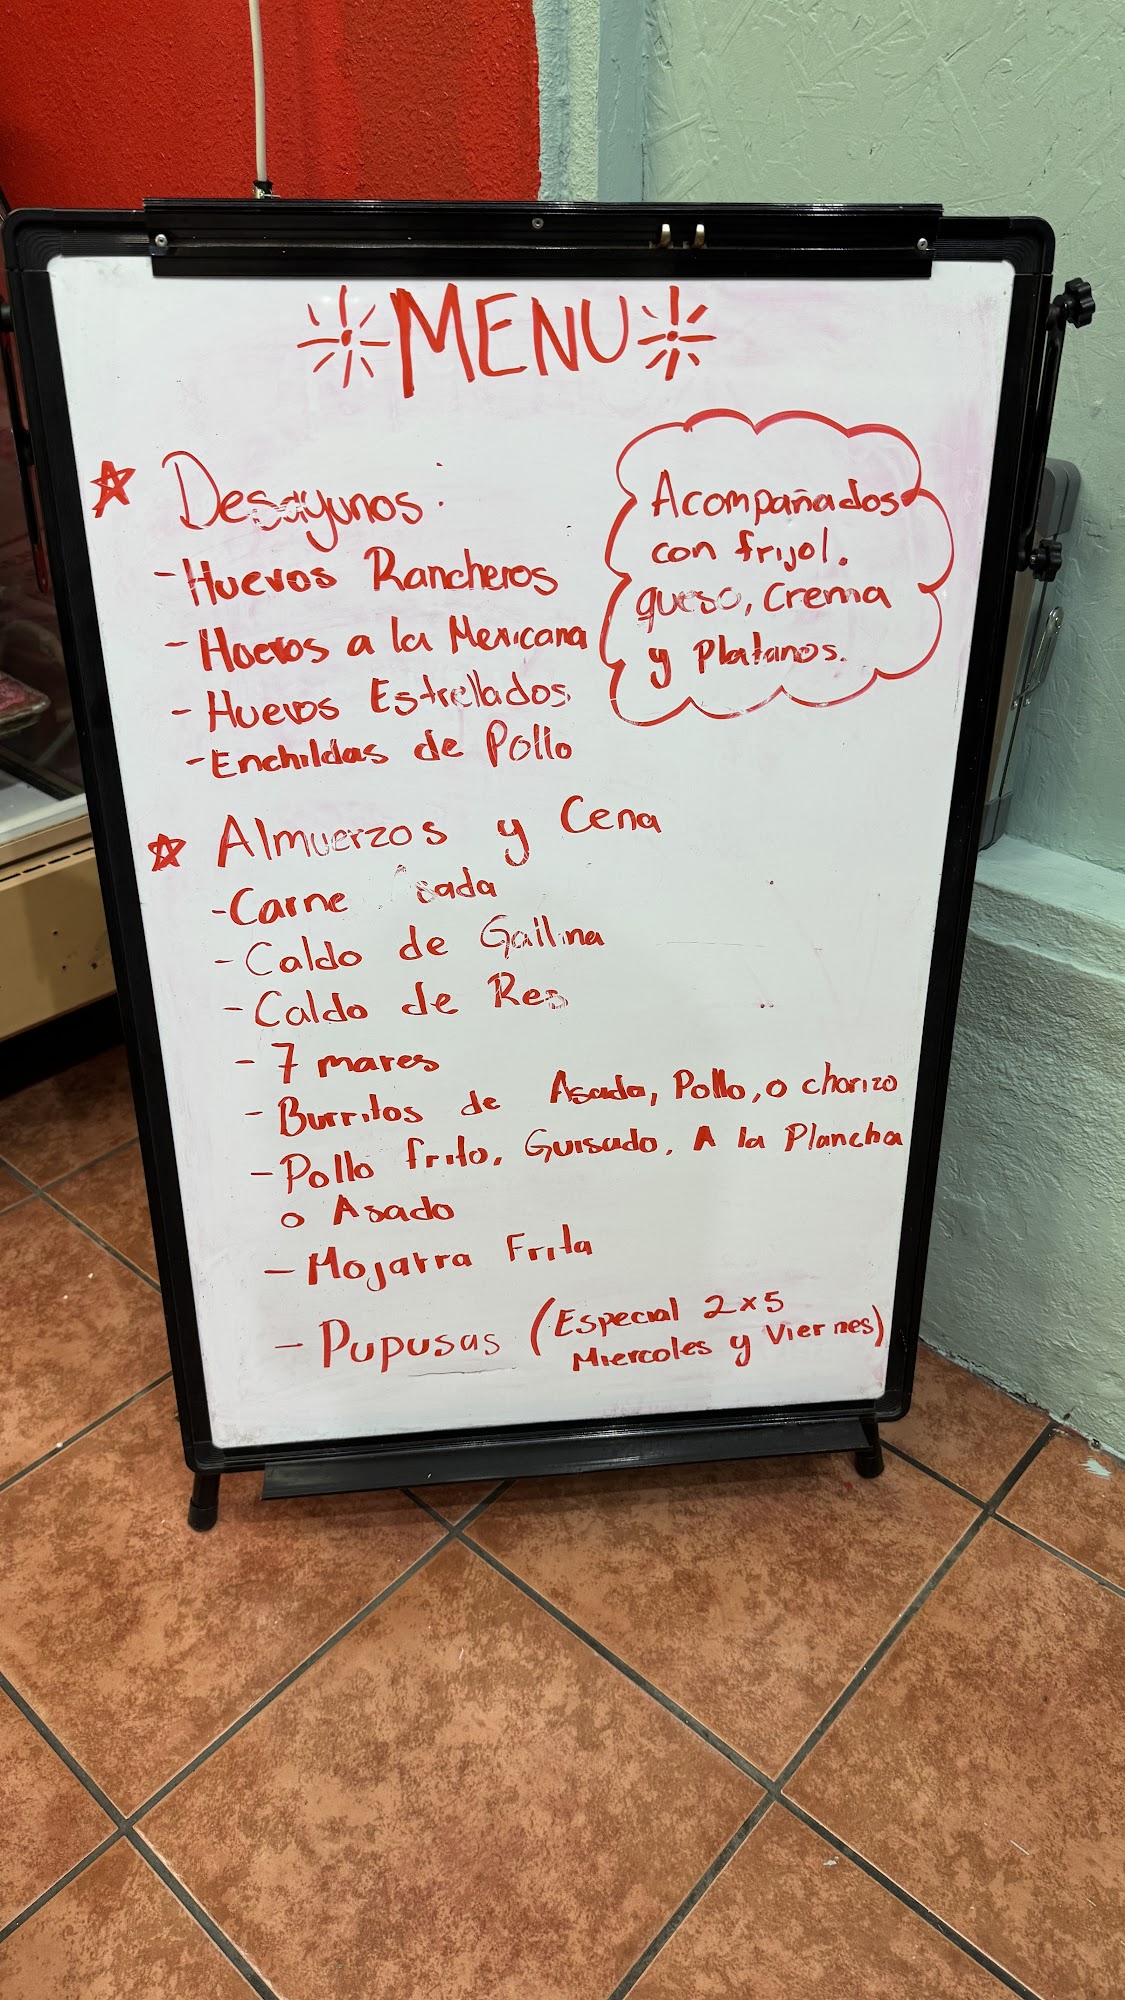 MENU
Desayunos:
- Huevos Rancheros
- Huevos a la Mexicana
- Huevos Estrellados
- Enchildas de Pollo
Acompañados
con frijol.
queso, Crema
y Platanos.
Almuerzos y Cena
- Carne Asada
- Caldo de Gallina
- Caldo de Res
- 7 mares
- Burritos de Asada, Pollo, o chorizo
- Pollo frito, Guisado, A la Plancha
o Asado
- Mojarra Frita
- Pupusas (Especial 2x5
Miercoles y Viernes)